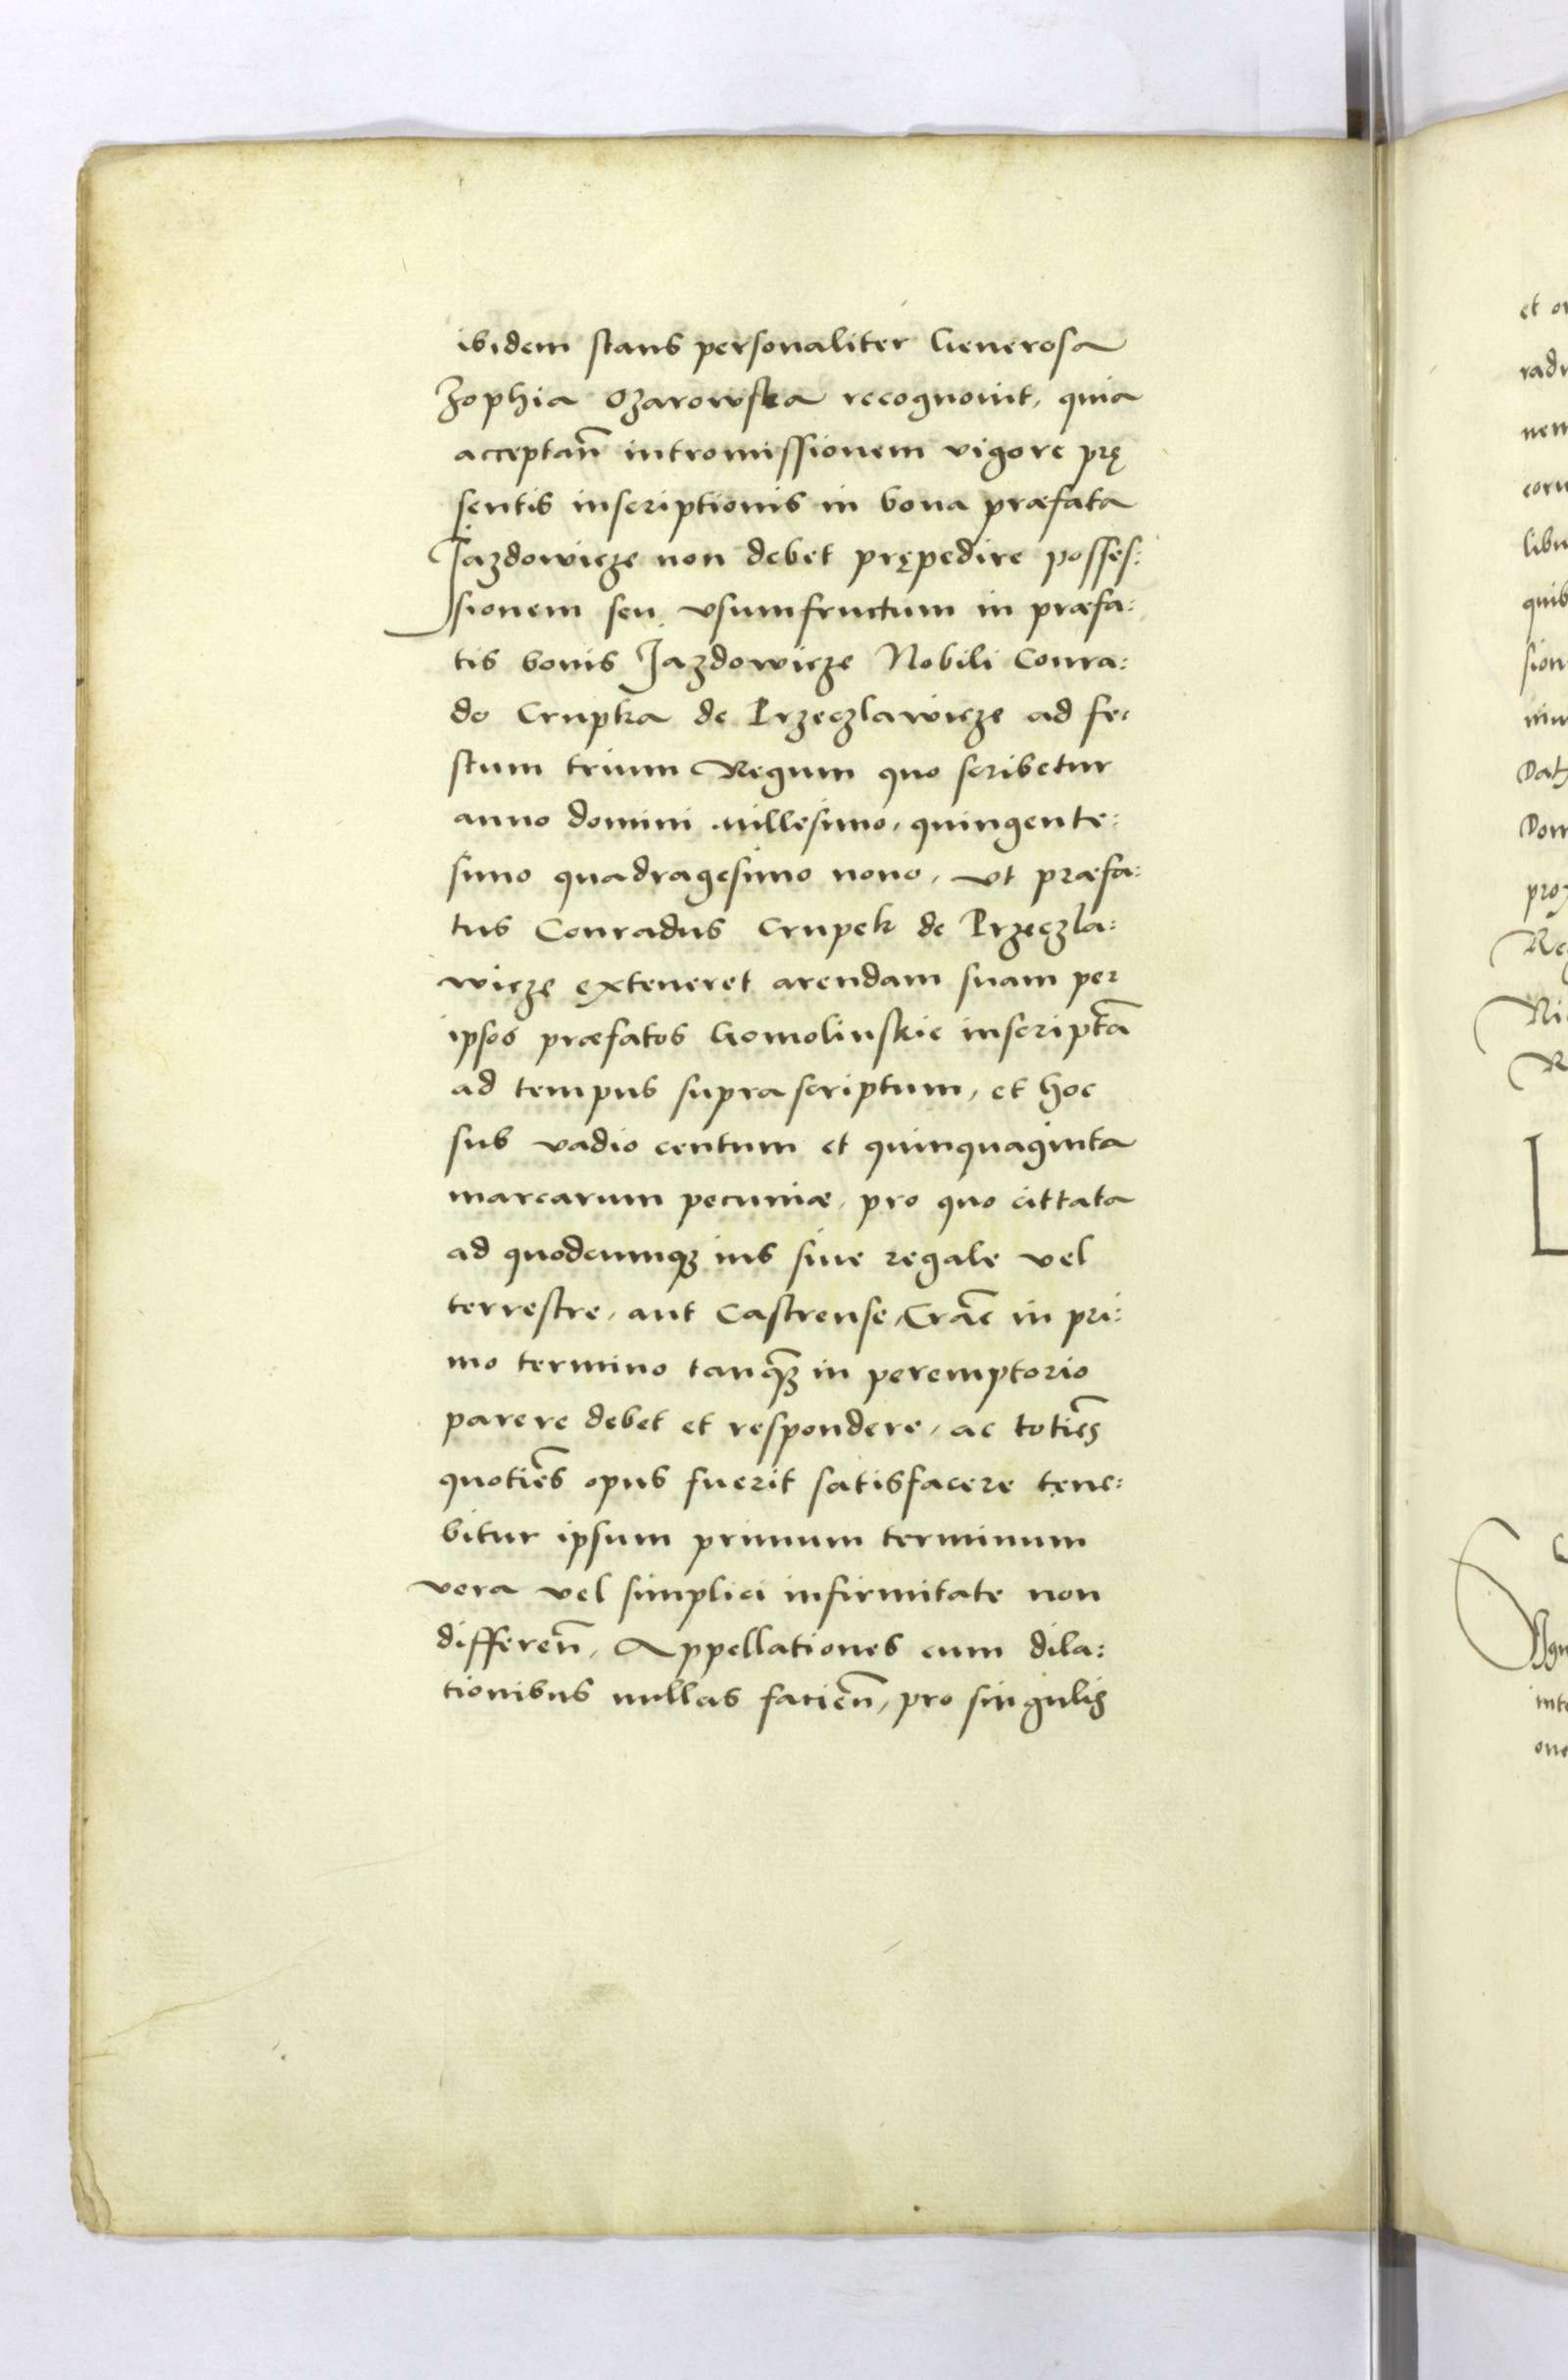 ibidem stans personaliter Generosa
Zophia Ozarowska recognovit, quia
acceptan̄ intromissionem vigore prę
sentis inscriptionis in bona præfata
Jazdowicze non debet prępedire posses:
sionem seu vsumfructum in præfa:
tis bonis Jazdowicze Nobili Conra:
do Crupka de Przeczlawicze ad fe:
stum trium Regum quo scribetur
anno domini millesimo, quingente:
simo quadragesimo nono, vt præfa:
tus Conradus Crupek de Przeczla:
wicze exteneret arendam suam per
ipsos præfatos Gomolinskie inscriptā
ad tempus suprascriptum, et hoc
sub vadio centum et quinquaginta
marcarum pecuniæ, pro quo cittata
ad quodcumqꝫ ius siue regale vel
terrestre, aut Castrense, Crac̄ in pri:
mo termino tanq̄ꝫ in peremptorio
parere debet et respondere, ac totiēs
quotiēs opus fuerit satisfacere tene:
bitur ipsum primum terminum
vera vel simplici infirmitate non
differen̄, Appellationes cum dila:
tionibus nullas facien̄, pro singulis
et
nem
libu
quib
sion
Dat
Dom
Re